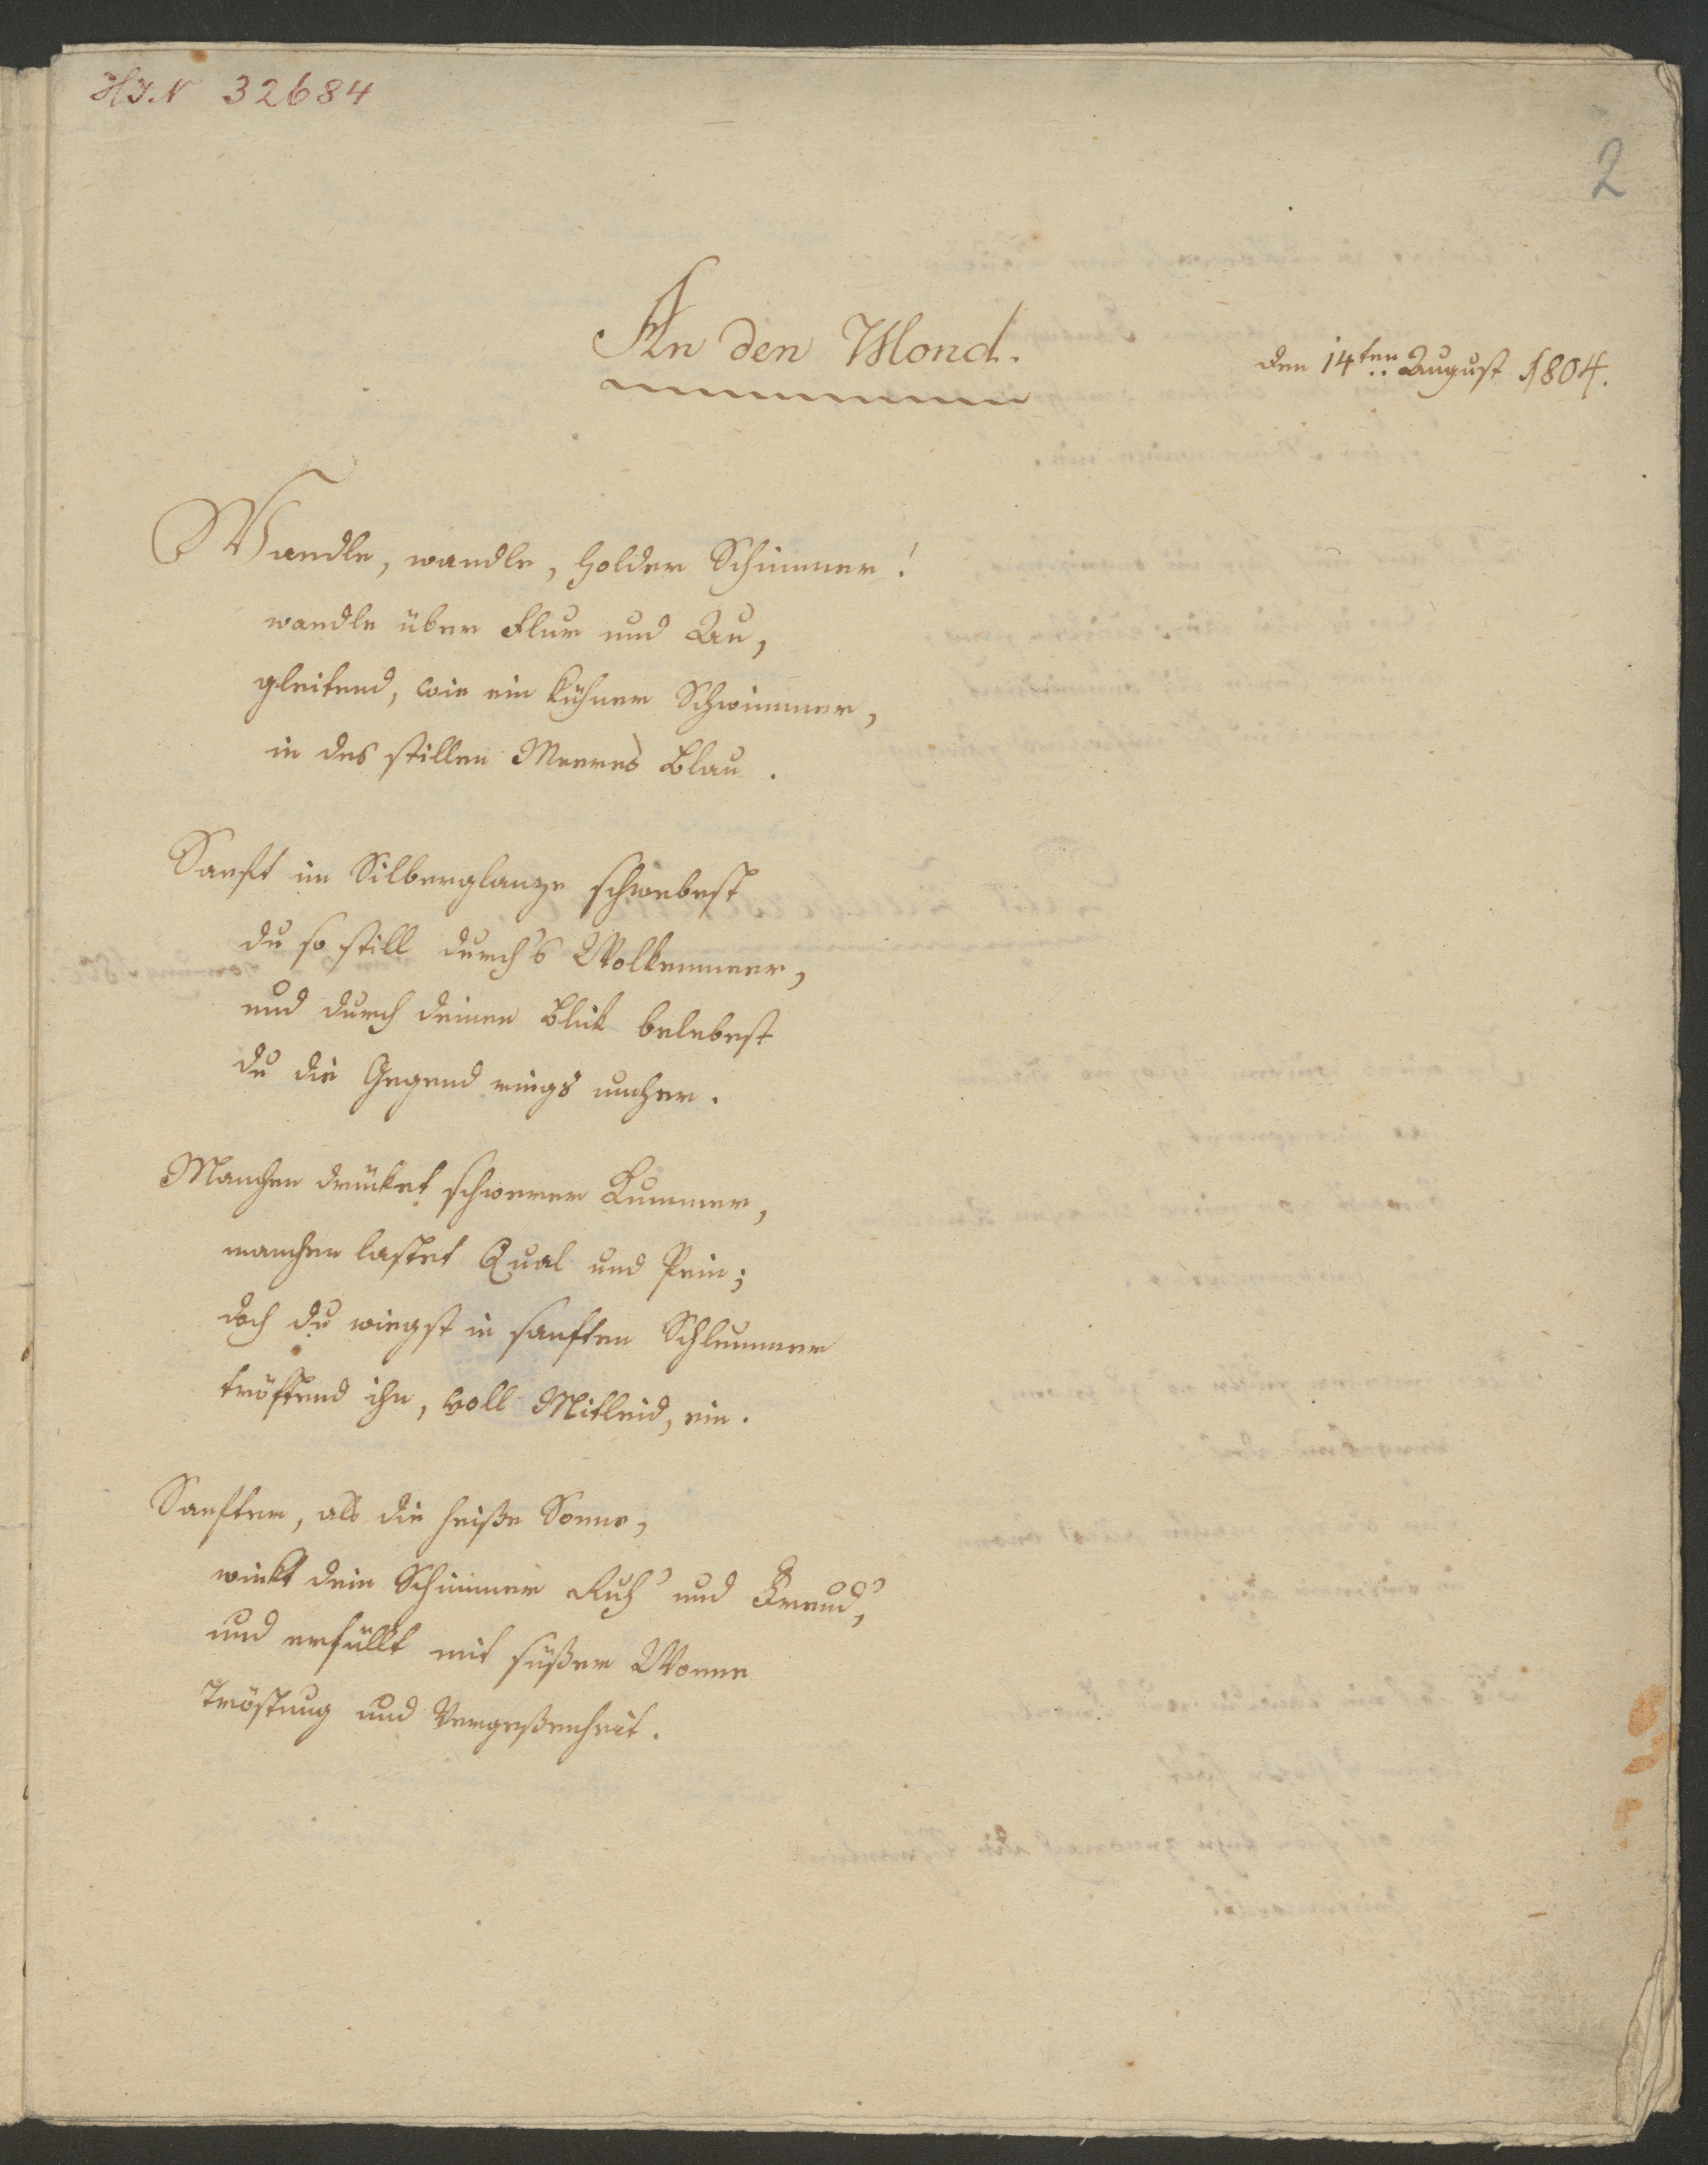 H.I.N 32684
2
An den Mond.
den 14ten August 1804.
Wandle, wandle, holder Schimmer!
wandle über Flur und Au,
gleitend, wie ein kühner Schwimmer,
in des stillen Meeres Blau.
Sanft im Silberglanze schwebest
du so still durch's Wolkenmeer,
und durch deinen Blick belebest
du die Gegend rings umher.
Manchen drücket schwerer Kummer,
manchen lastet Qual und Pein;
doch du wiegst in sanften Schlummer
tröstend ihn, voll Mitleid, ein.
Sanfter, als die heiße Sonne,
winkt dein Schimmer Ruh' und Freud',
und erfüllt mit süßer Wonne
Tröstung und Vergeßenheit.